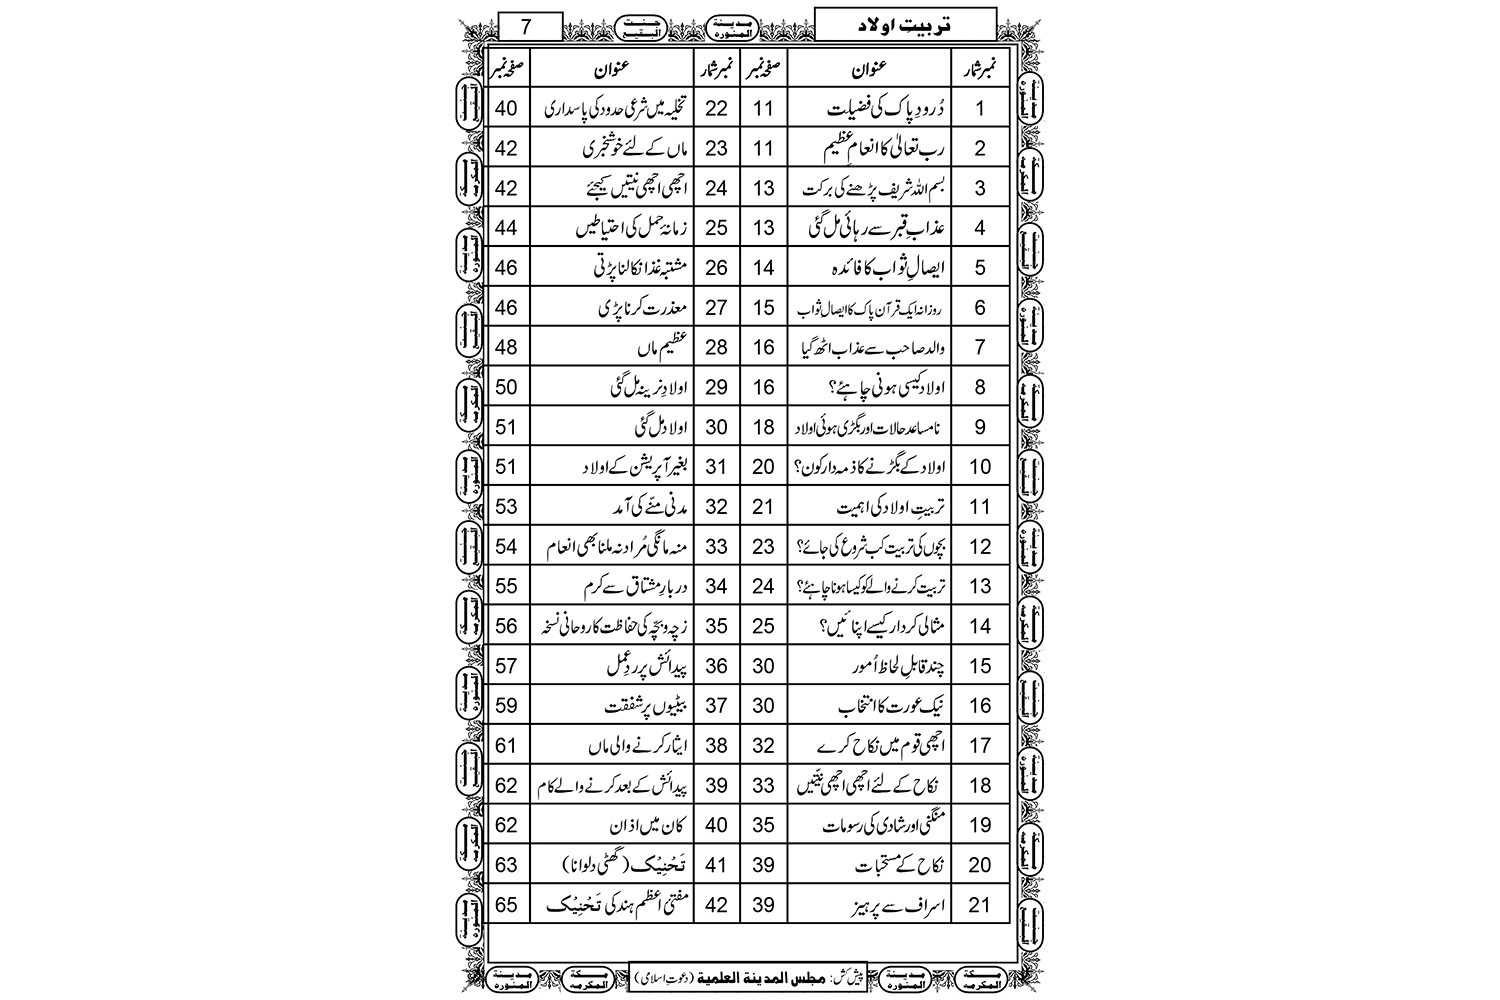 تربیتِ اولاد
جنت البقیع
مدینة المنوره
7
نمبر شمار عنوان صفحہ نمبر نمبر شمار عنوان صفحہ نمبر
1 دُرودِ پاک کی فضیلت 11 22 تخلیہ میں شرعی حدود کی پاسداری 40
2 رب تعالیٰ کا انعامِ عظیم 11 23 ماں کے لئے خوشخبری 42
3 بسم اللہ شریف پڑھنے کی برکت 13 24 اچھی اچھی نیتیں کیجئے 42
4 عذابِ قبر سے رہائی مل گئی 13 25 زمانۂ حمل کی احتیاطیں 44
5 ایصالِ ثواب کا فائدہ 14 26 مشتبہ غذا نکالنا پڑتی 46
6 روزانہ ایک قرآن پاک کا ایصال ثواب 15 27 معذرت کرنا پڑی 46
7 والد صاحب سے عذاب اٹھ گیا 16 28 عظیم ماں 48
8 اولاد کیسی ہونی چاہئے؟ 16 29 اولادِ نرینہ مل گئی 50
9 نامساعد حالات اور بگڑی ہوئی اولاد 18 30 اولاد مل گئی 51
10 اولاد کے بگڑنے کا ذمہ دار کون؟ 20 31 بغیر آپریشن کے اولاد 51
11 تربیتِ اولاد کی اہمیت 21 32 مدنی منّے کی آمد 53
12 بچوں کی تربیت کب شروع کی جائے؟ 23 33 منہ مانگی مُراد نہ ملنا بھی انعام 54
13 تربیت کرنے والے کو کیسا ہونا چاہئے؟ 24 34 دربارِ مشتاق سے کرم 55
14 مثالی کردار کیسے اپنائیں؟ 25 35 زچہ و بچّہ کی حفاظت کا روحانی نسخہ 56
15 چند قابلِ لحاظ اُمور 30 36 پیدائش پر ردِعمل 57
16 نیک عورت کا انتخاب 30 37 بیٹیوں پر شفقت 59
17 اچھی قوم میں نکاح کرے 32 38 ایثار کرنے والی ماں 61
18 نکاح کے لئے اچھی اچھی نیّتیں 33 39 پیدائش کے بعد کرنے والے کام 62
19 منگنی اور شادی کی رسومات 35 40 کان میں اذان 62
20 نکاح کے مستحبات 39 41 تَحْنِیْک (گھٹی دلوانا) 63
21 اسراف سے پرہیز 39 42 مفتیٔ اعظم ہند کی تَحْنِیْک 65
پیش کش: مجلس المدینة العلمیة (دعوتِ اسلامی)
مدینة المنوره
مكة المكرمه
مدینة المنوره
مكة المكرمه